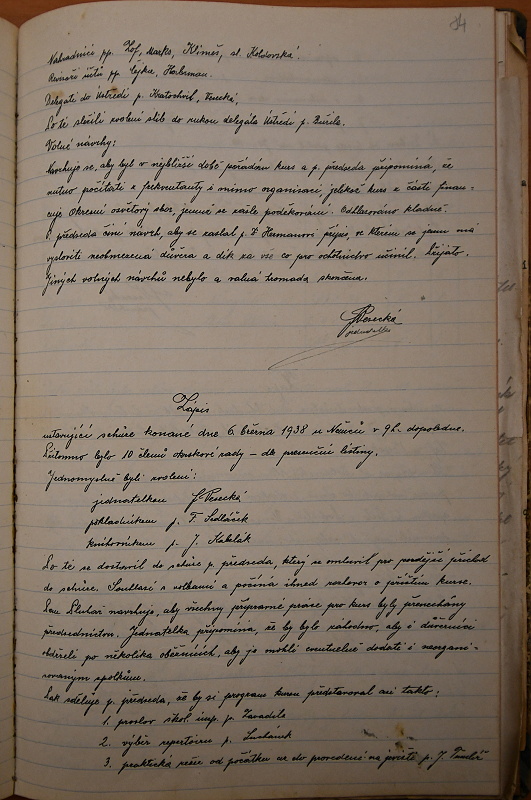 84
Náhradníci pp. Zof, Marks, Klimeš, sl. Koldovská.
Revisoři účtů pp. Čejka, Haberman.
Delegáti do Ústředí p. Kratochvil, Vesecká,
Po té složili zvolení slib do rukou delegáta Ústředí p. Bureše.
Volné návrhy:
Navrhuje se, aby byl v nejbližší době pořádán kurs a p. předseda připomíná, že
nutno počítati z frekventanty i mimo organisaci, jelikož kurs z části finan-
cuje Okresní osvětový sbor, jemuž se zašle poděkování. Odhlasováno kladně.
P. předseda činí návrh, aby se zaslal p. F. Hermanovi přípis, ve kterém se jemu má
vysloviti neobmezená důvěra a dík za vše co pro ochotnictvo učinil. Přijato.
Jiných volných návrhů nebylo a valná hromada skončena.
Vesecká
jednatelka
Zápis
ustavující schůze konané dne 6. března 1938 u Němců v 9h. dopoledne.
Přítomno bylo 10 členů okrskové rady – dle presenční listiny.
Jednomyslně byli zvoleni:
jednatelkou Vesecká
pokladníkem p. F. Sedláček
knihovníkem p. J. Kabelák
Po té se dostavil do schůze p. předseda, který se omluvil pro pozdější příchod
do schůze. Souhlasí s volbami a počíná ihned rozhovor o příštím kurse.
Pan Pluhař navrhuje, aby všechny přípravné práce pro kurs byly přenechány
předsednictvu. Jednatelka připomíná, že by bylo záhodno, aby i důvěrníci
obdrželi po několika oběžnících, aby je mohli eventuelně dodati i neorgani-
sovaným spolkům.
Pak sděluje p. předseda, že by si program kursu představoval asi takto:
1. proslov škol. insp. p. Zavadila
2. výběr repertoiru p.
3. praktická režie od počátku až do provedení na jevišti p. J.